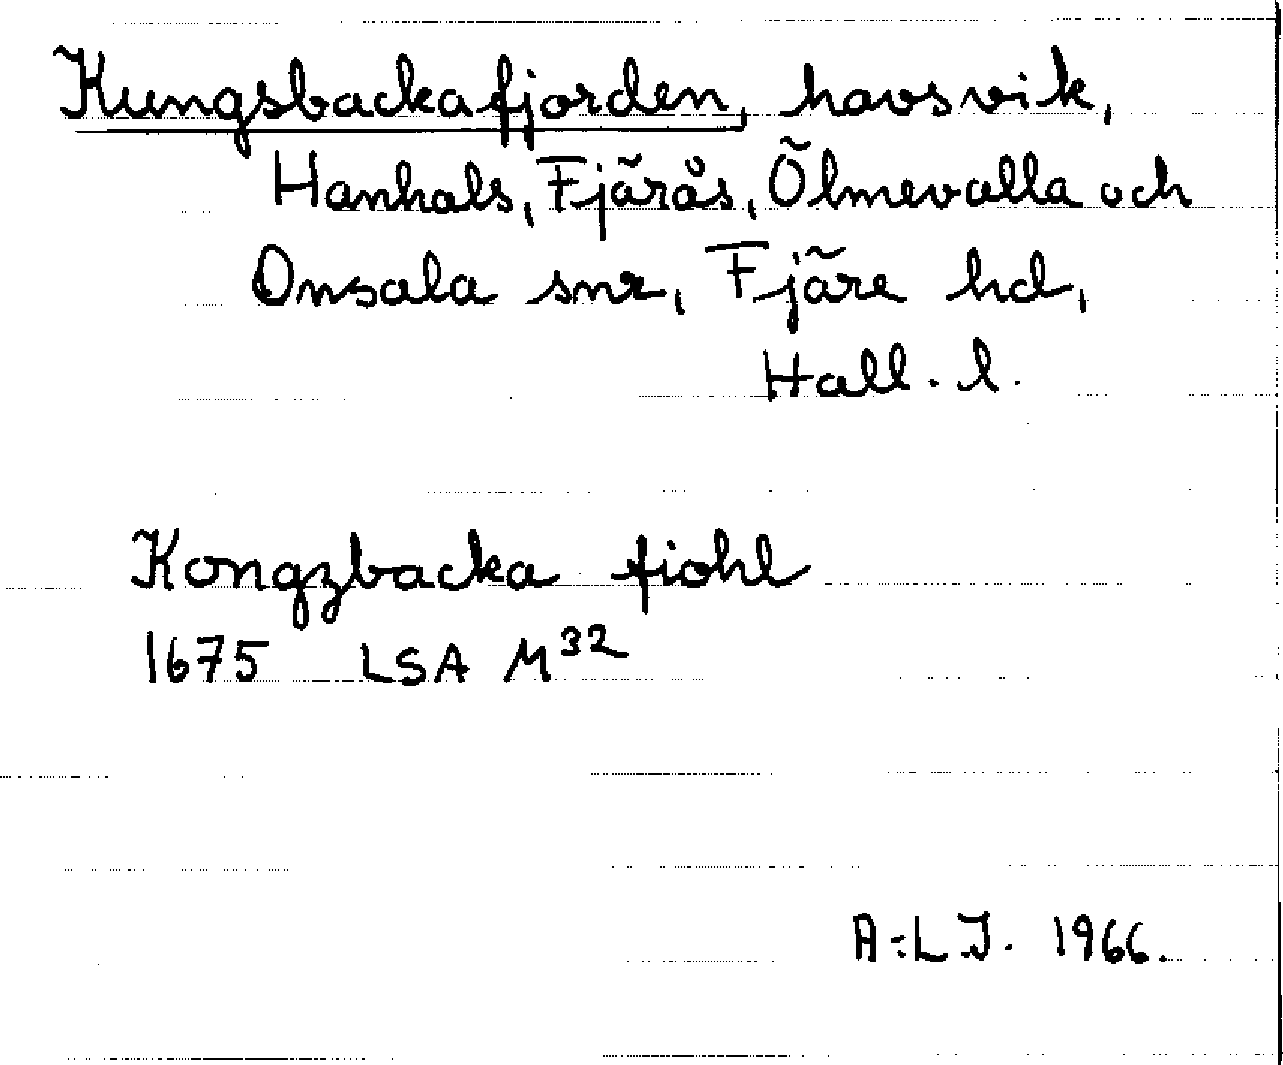 Kungsbackafjorden, havsvik,
Hanhals, Fjärås, Ölmevalla och
Onsala snr, Fjäre hd,
Hall. l.
Kongzbacka fiohl
1675 LSA M³²
A-L J. 1966.